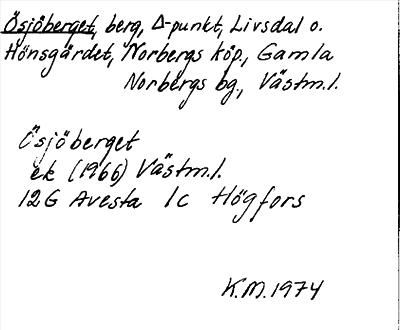 Ösjöberget, berg, Δ-punkt, Livsdal o.
Hönsgärdet, Norbergs köp., Gamla
Norbergs bg., Västm.l.
Ösjöberget
ek (1966) Västm.l.
12G Avesta 1c Högfors
K.M. 1974